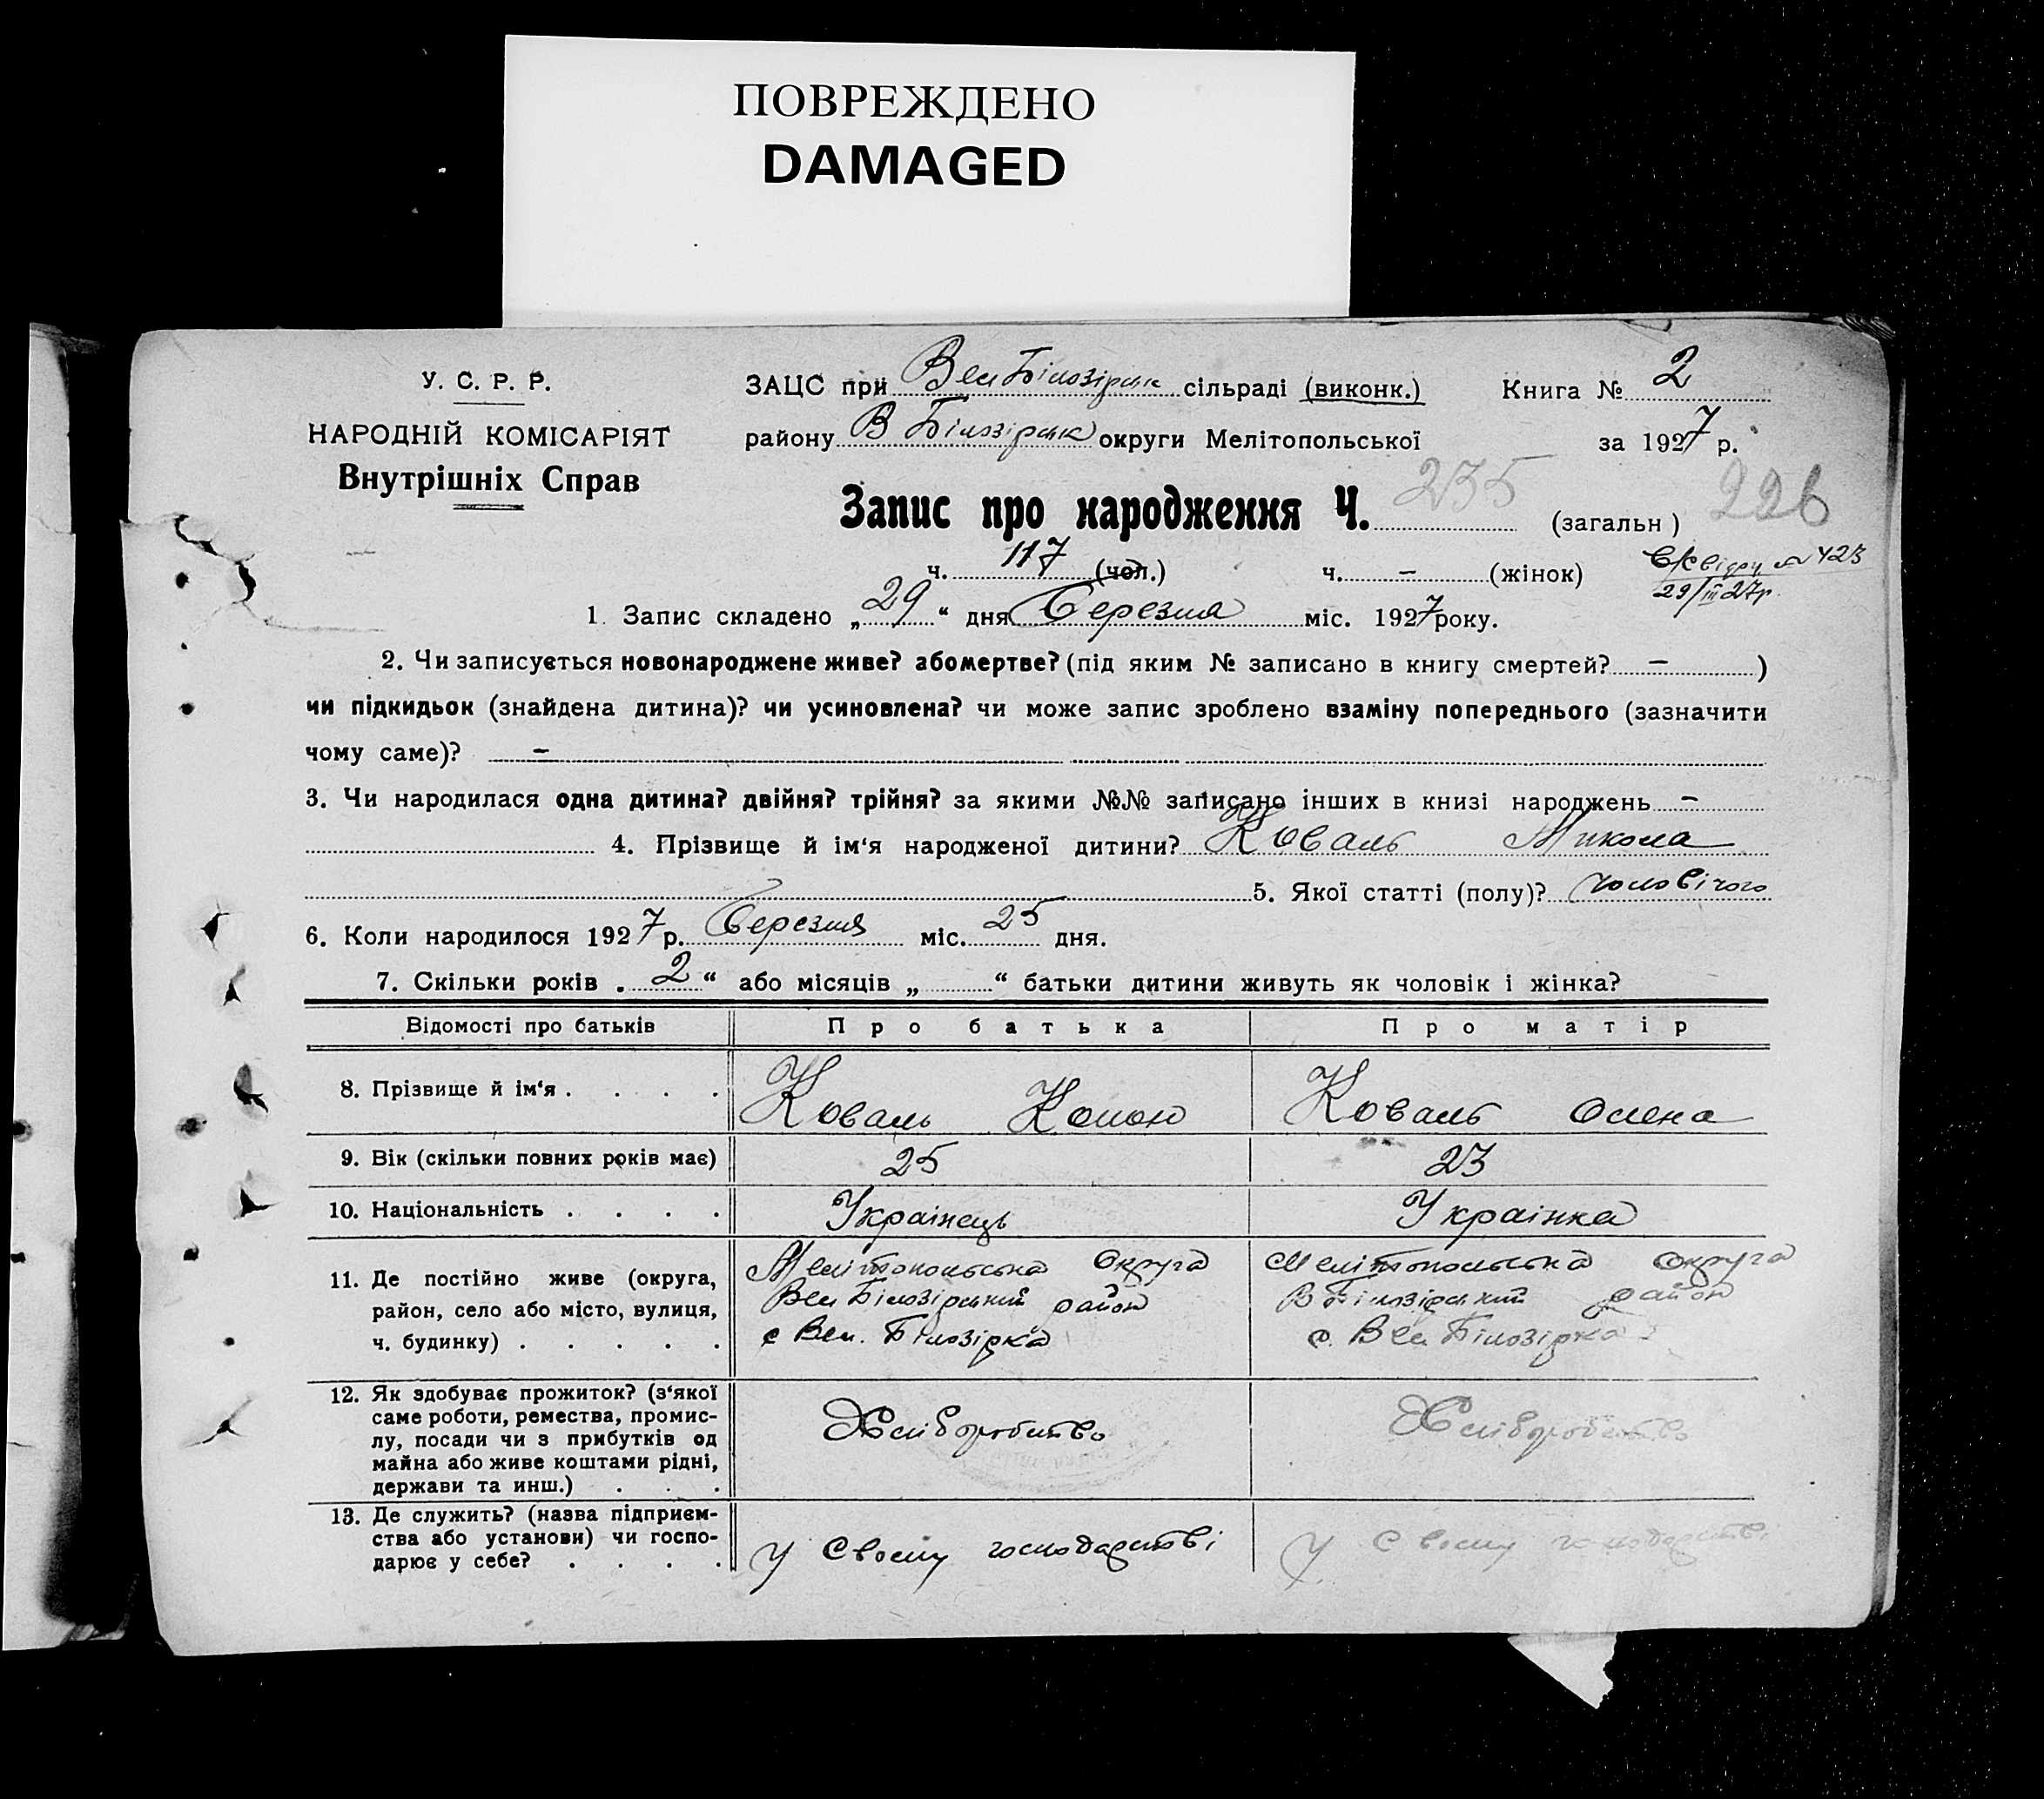 ПОВРЕЖДЕНО
DAMAGED
У. С. Р. Р.
НАРОДНІЙ КОМІСАРІЯТ
Внутрішніх Справ
ЗАЦС при Вел Білозірськ сільраді (виконк.) Книга № 2
району В Білозірськ округи Мелітопольської за 1927 р.
Запис про народження Ч. 235 (загальн) 226
ч. 117 (чол.) ч. – (жінок)
№ 423
29/III 27р.
1. Запис складено „29“ дня Березня міс. 1927 року.
2. Чи записується новонароджене живе? або мертве? (під яким № записано в книгу смертей? – )
чи підкидьок (знайдена дитина)? чи усиновлена? чи може запис зроблено взаміну попереднього (зазначити
чому саме)? –
3. Чи народилася одна дитина? двійня? трійня? за якими №№ записано інших в книзі народжень –
4. Прізвище й ім‘я народженої дитини? Коваль Микола
5. Якої статті (полу)? чоловічого
6. Коли народилося 1927 р. Березня міс. 25 дня.
7. Скільки років „2“ або місяців „ “ батьки дитини живуть як чоловік і жінка?
Відомості про батьків Про батька Про матір
8. Прізвище й ім‘я . . . . Коваль Конон Коваль Олена
9. Вік (скільки повних років має) 25 23
10. Національність . . . . Українець Українка
11. Де постійно живе (округа,
район, село або місто, вулиця,
ч. будинку) . . . . .
Мелітопольська Округа
Вел Білозірський район
с Вел. Білозірка
Мелітопольська Округа
В Білозірський район
с. Вел Білозірка
12. Як здобуває прожиток? (з‘якої
саме роботи, ремества, промис-
лу, посади чи з прибутків од
майна або живе коштами рідні,
держави та инш.) . . .
Хліборобство
Хліборобство
13. Де служить? (назва підприєм-
ства або установи) чи госпо-
дарює у себе? . . . .
у своєму господарстві
у своєму господарстві